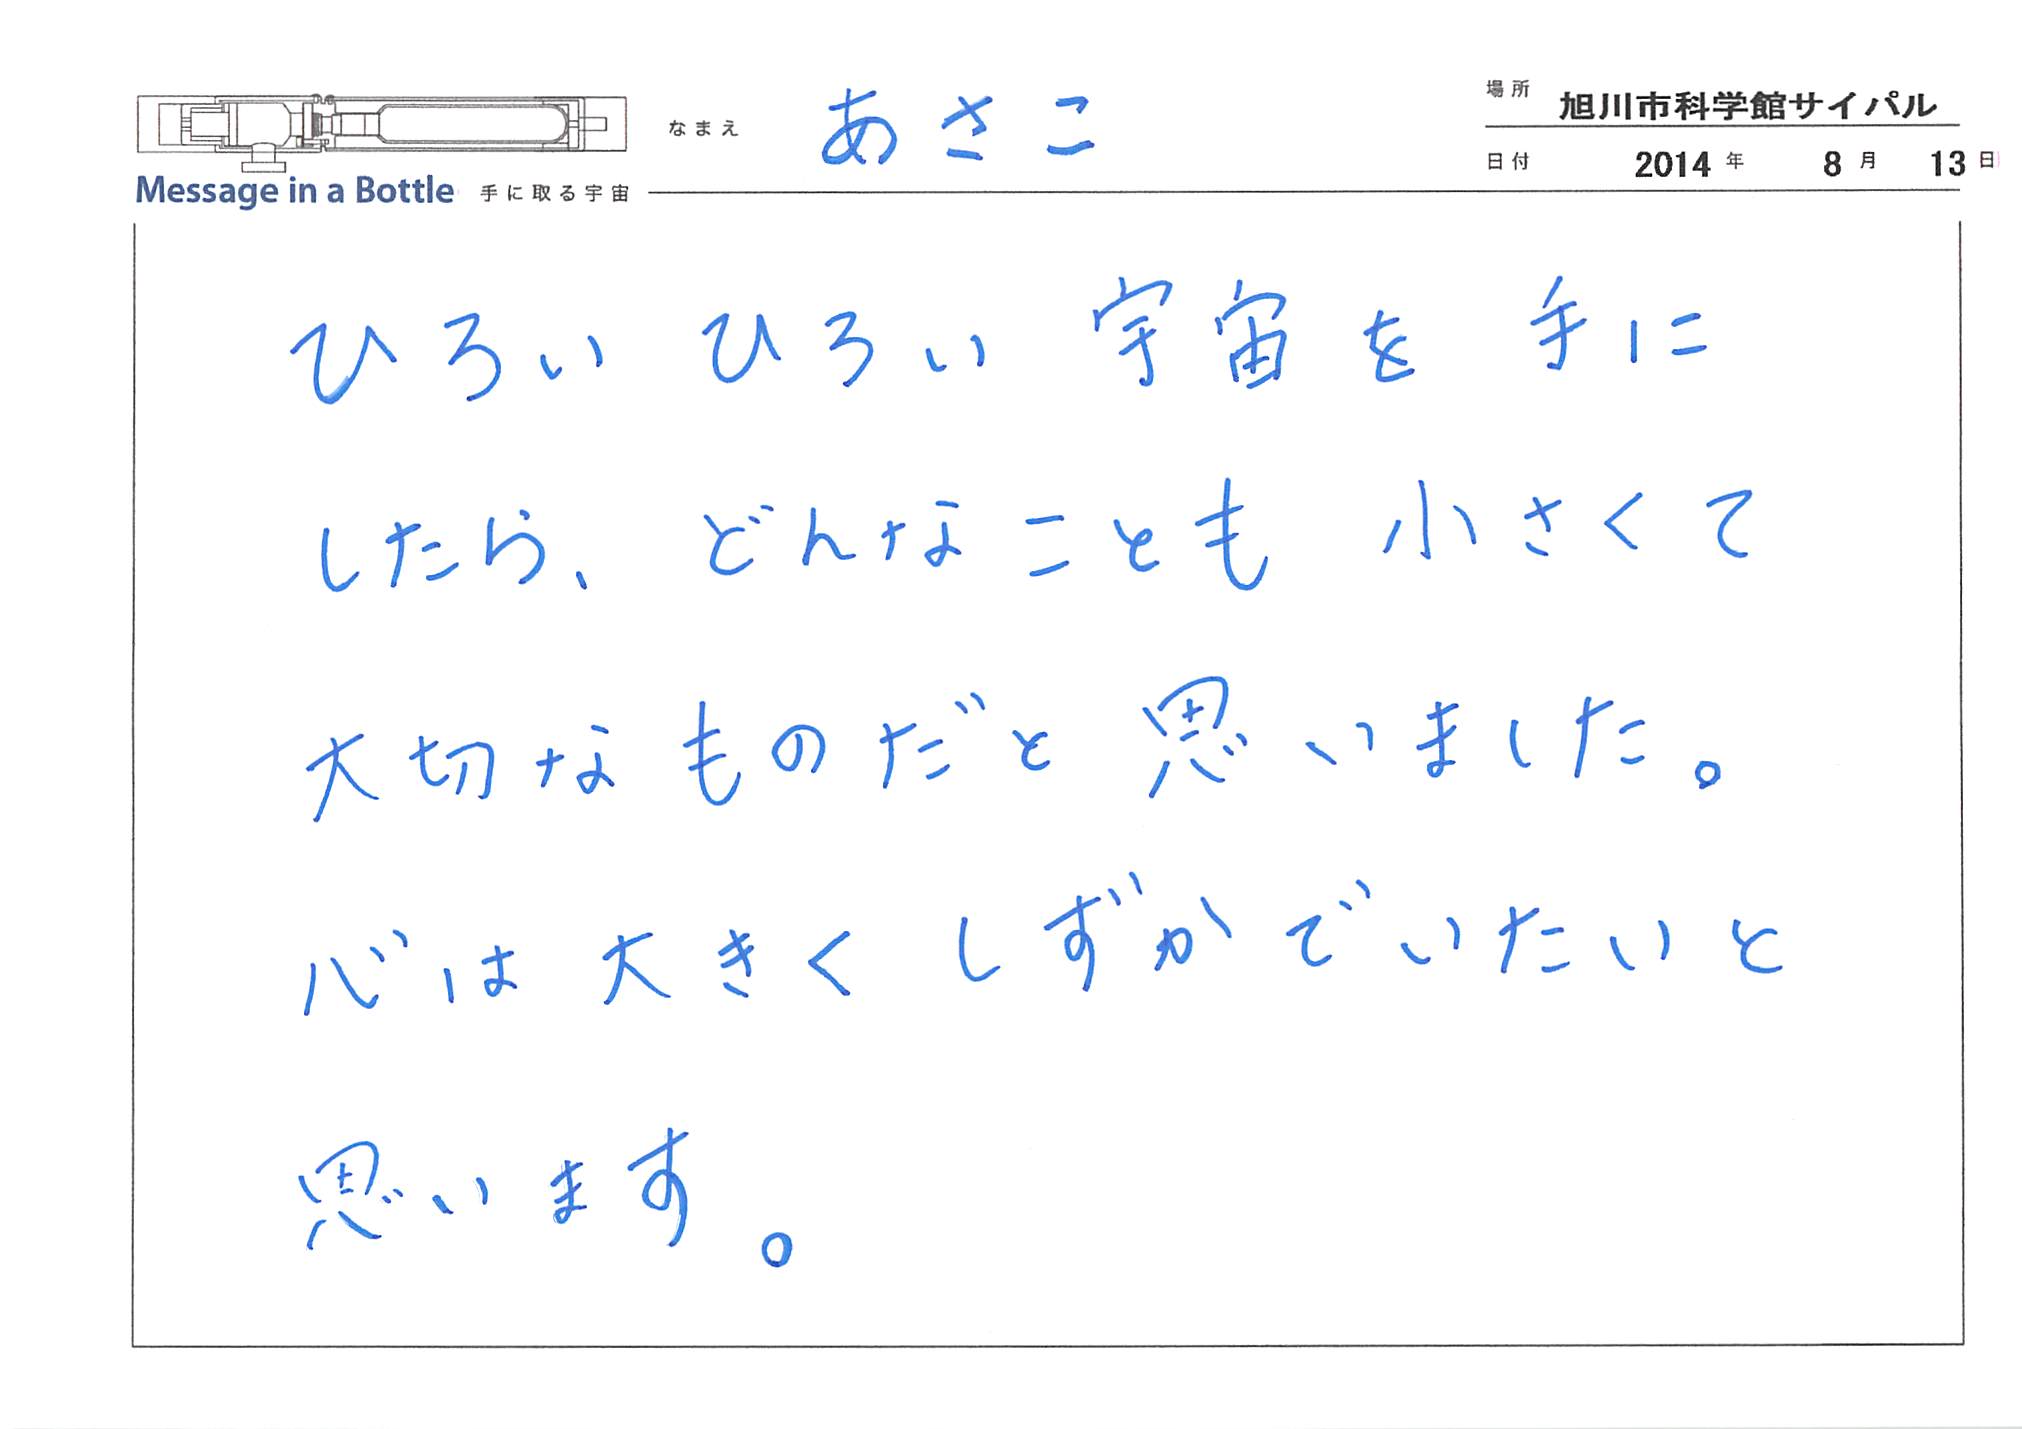 なまえ あさこ
場所 旭川市科学館サイパル
日付 2014 年 8 月 13 日
Message in a Bottle 手に取る宇宙
ひろい ひろい 宇宙を 手に
したら、どんなことも 小さくて
大切なものだと 思いました。
心は 大きく しずかでいたいと
思います。